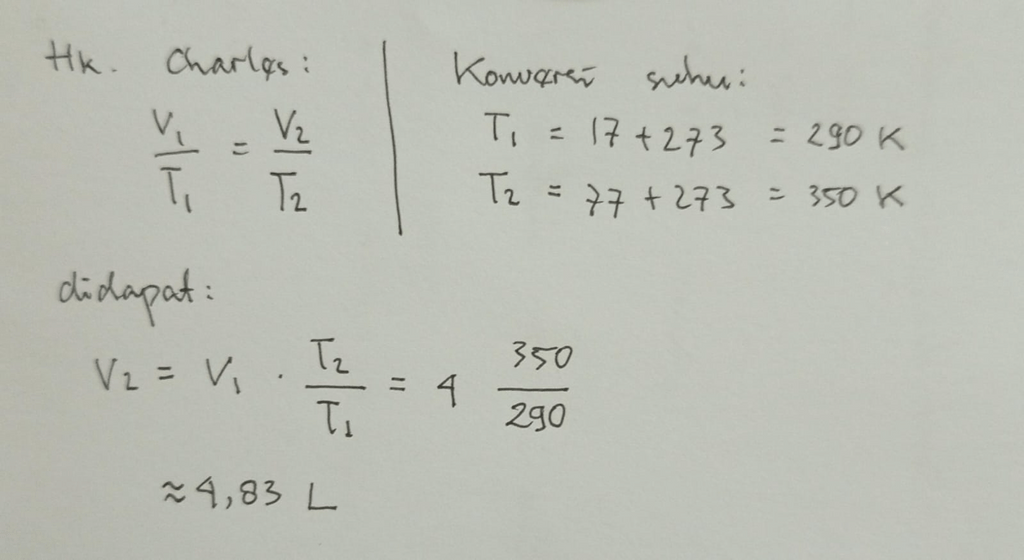 Hk. Charles:
V₁/T₁ = V₂/T₂
Konversi suhu:
T₁ = 17 + 273 = 290 K
T₂ = 77 + 273 = 350 K
didapat:
V₂ = V₁ . T₂/T₁ = 4 350/290
≈ 4,83 L